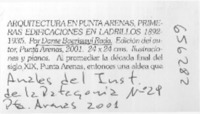 ARQUITECTURA EN PUNTA ARENAS, PRIME-
RAS EDIFICACIONES EN LADRILLOS 1892-
1935. Por Dante Baeriswyl Rada. Edición del au-
tor, Punta Arenas, 2001. 24 x 24 cms. Ilustracio-
nes y planos. A promediar la década final del
siglo XIX, Punta Arenas, entonces una aldea que
Anales del Inst.
de la Patagonia Nº 29
Pta. Arenas 2001
656282